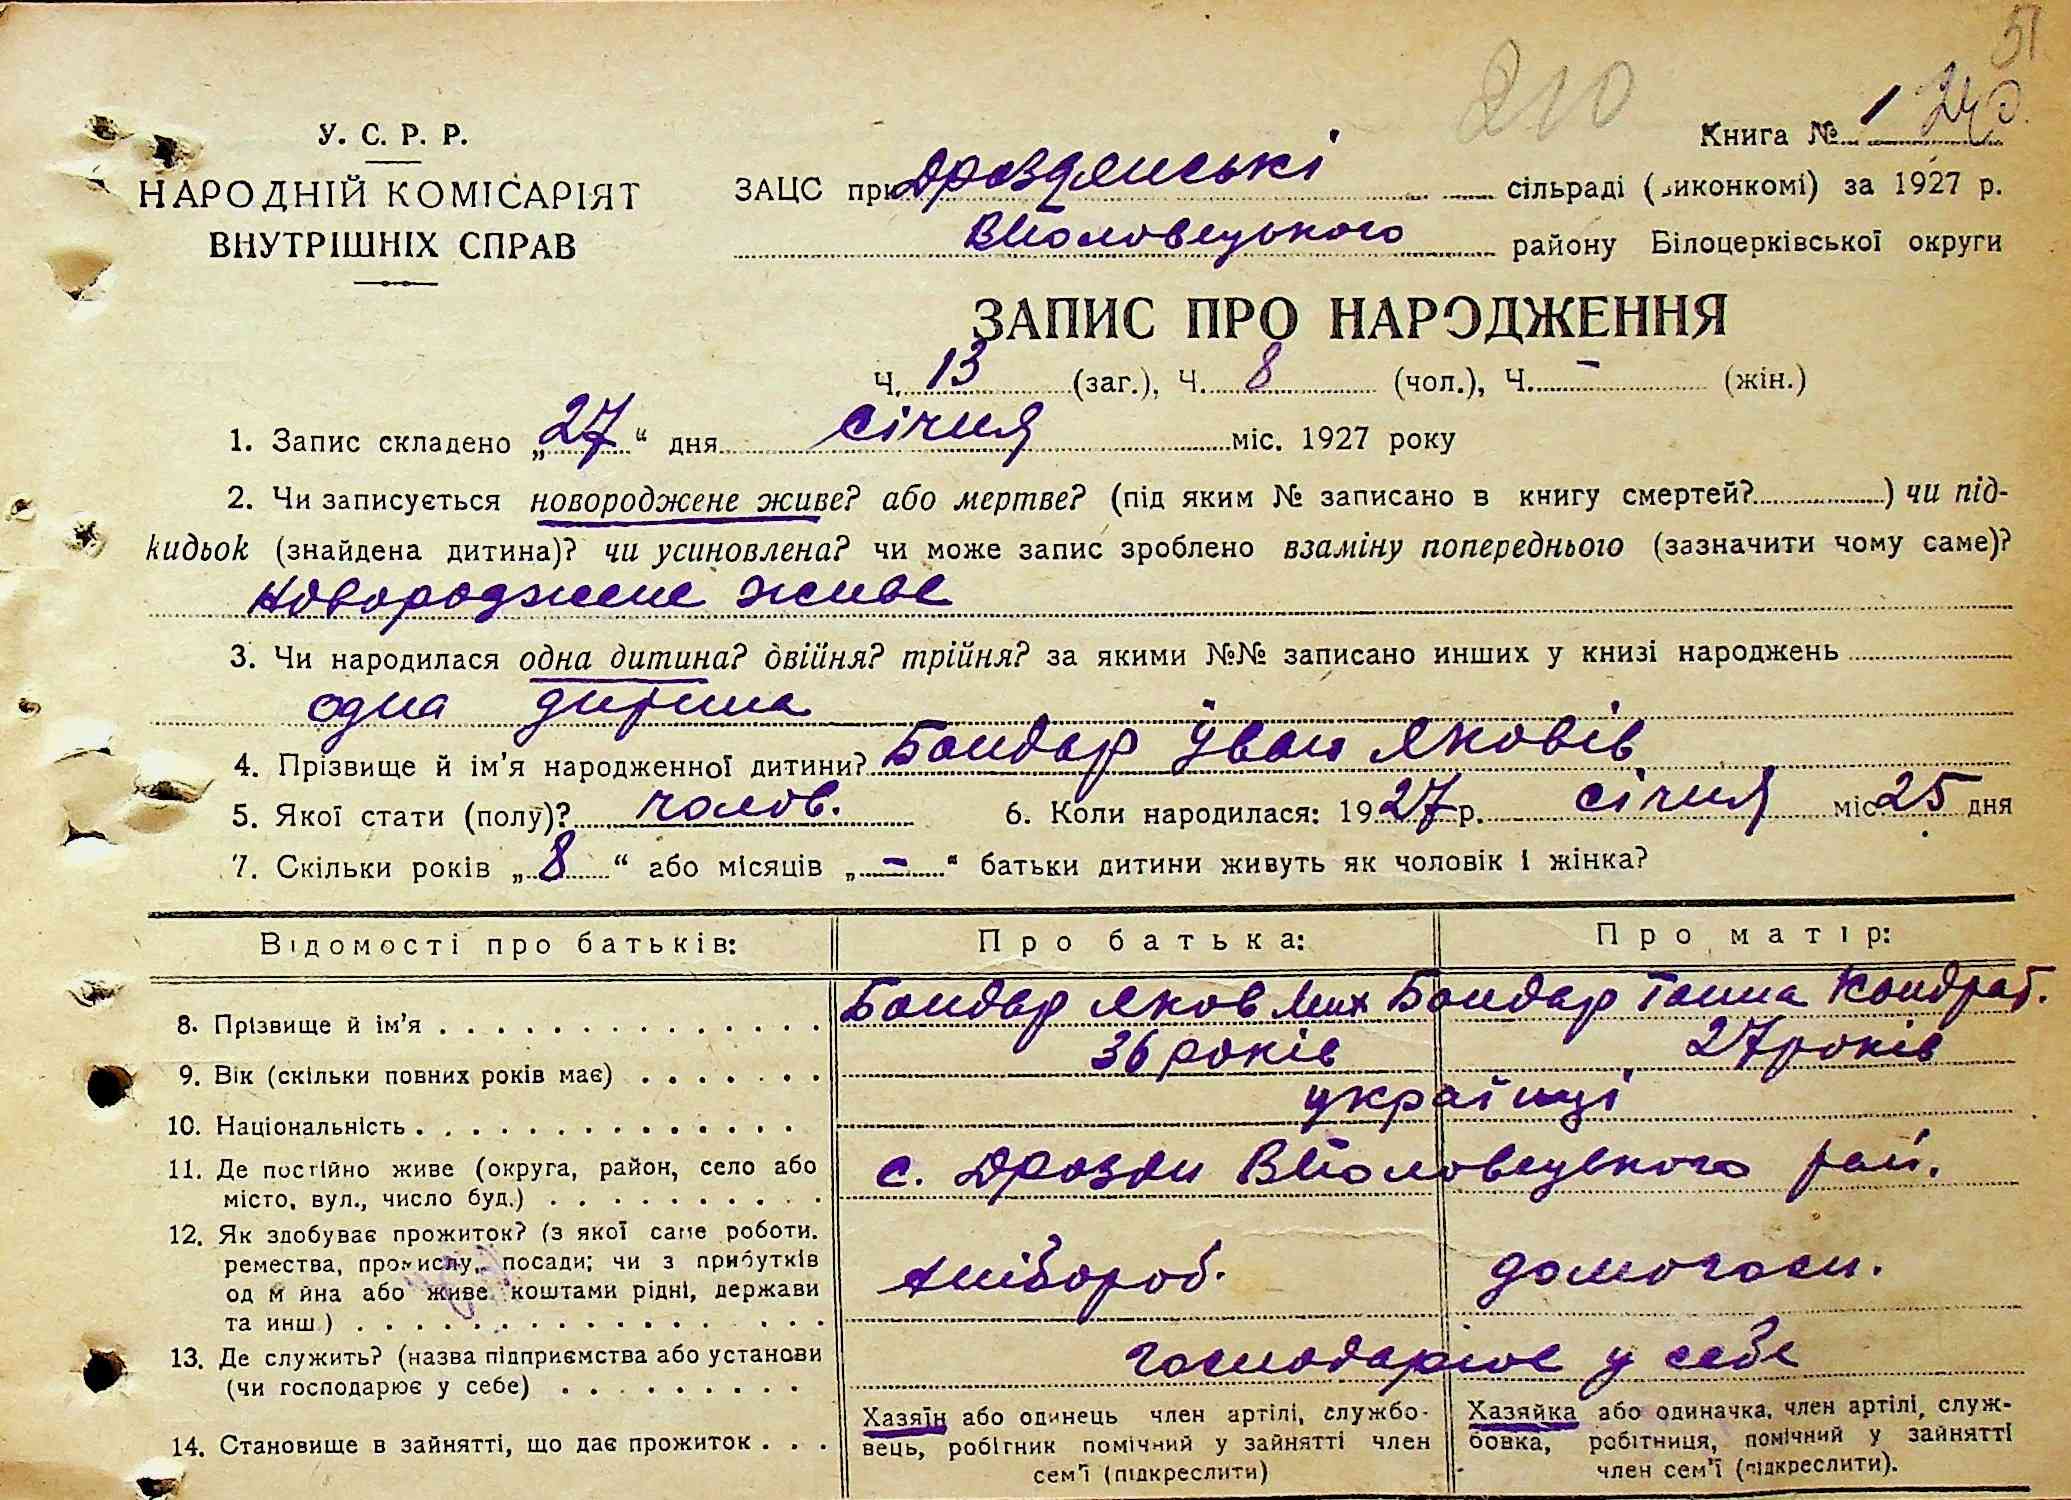 51
210
Книга № 1 240.
У. С. Р. Р.
НАРОДНІЙ КОМІСАРІЯТ
ВНУТРІШНІХ СПРАВ
ЗАЦС при Дроздянські сільраді (виконкомі) за 1927 р.
ВПоловецького району Білоцерківської округи
ЗАПИС ПРО НАРОДЖЕННЯ
Ч. 13 (заг.), Ч. 8 (чол.), Ч. – (жін.)
1. Запис складено „27“ дня січня міс. 1927 року
2. Чи записується новороджене живе? або мертве? (під яким № записано в книгу смертей?) чи під-
кидьок (знайдена дитина)? чи усиновлена? чи може запис зроблено взаміну попереднього (зазначити чому саме)?
новороджене живе
3. Чи народилася одна дитина? двійня? трійня? за якими №№ записано инших у книзі народжень
одна дитина
4. Прізвище й ім'я народженної дитини? Бондар Іван Яковів
5. Якої стати (полу)? чолов. 6. Коли народилася: 1927 р. січня міс. 25 дня
7. Скільки років „8“ або місяців „–“ батьки дитини живуть як чоловік і жінка?
Відомості про батьків: Про батька: Про матір:
8. Прізвище й ім'я Бондар Яков Мих Бондар Ганна Кондрат.
9. Вік (скільки повних років має) 36 років 27 років
10. Національність українці
11. Де постійно живе (округа, район, село або
місто, вул., число буд.) с. Дрозди ВПоловецького рай.
12. Як здобуває прожиток? (з якої саме роботи.
ремества, промислу, посади; чи з прибутків
од м йна або живе коштами рідні, держави
та инш.) хлібороб. домогосп.
13. Де служить? (назва підприємства або установи
(чи господарює у себе) господарює у себе
14. Становище в зайнятті, що дає прожиток
Хазяїн або одинець член артілі, службо-
вець, робітник помічний у зайнятті член
сем'ї (підкреслити)
Хазяйка або одиначка, член артілі, служ-
бовка, робітниця, помічний у зайнятті
член сем'ї (підкреслити).